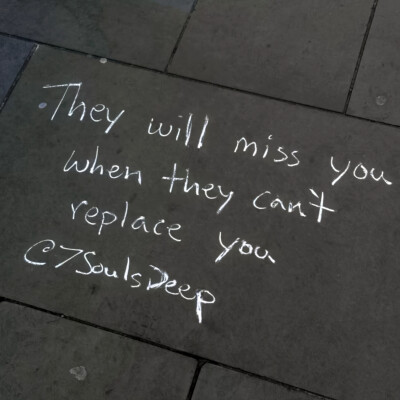 They will miss you
when they can't
replace you
@7SoulsDeep